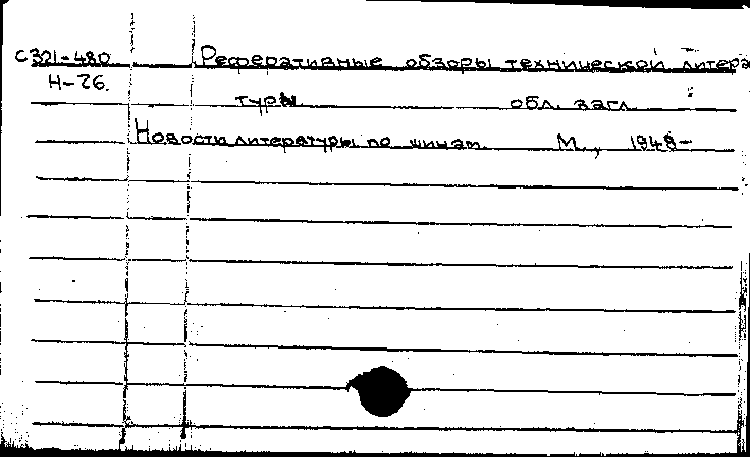 С321-480 Реферативные обзоры технической литера
Н-76. туры обл. загл.
Новости литературы по шинам. М., 1948-